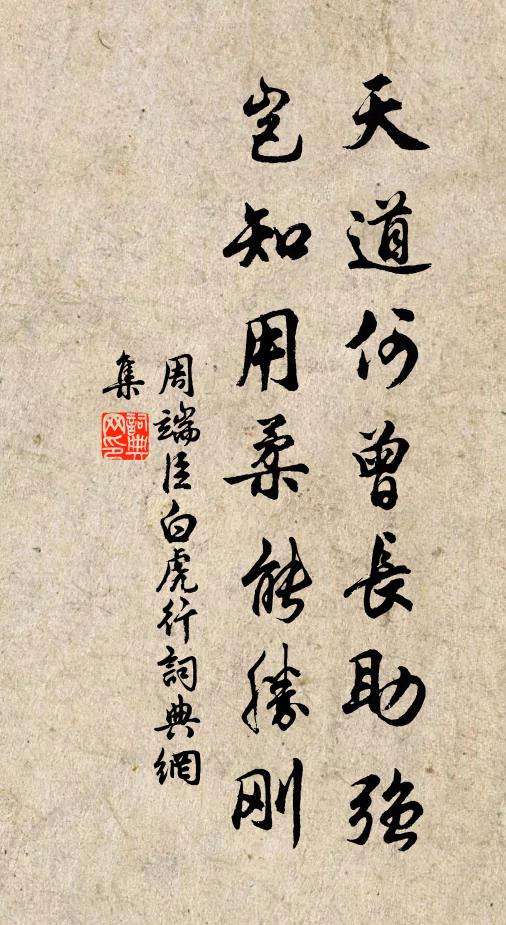 天道何曾長助強
豈知用柔能勝剛
周端臣白虎行詞典網
集
詞典
网印